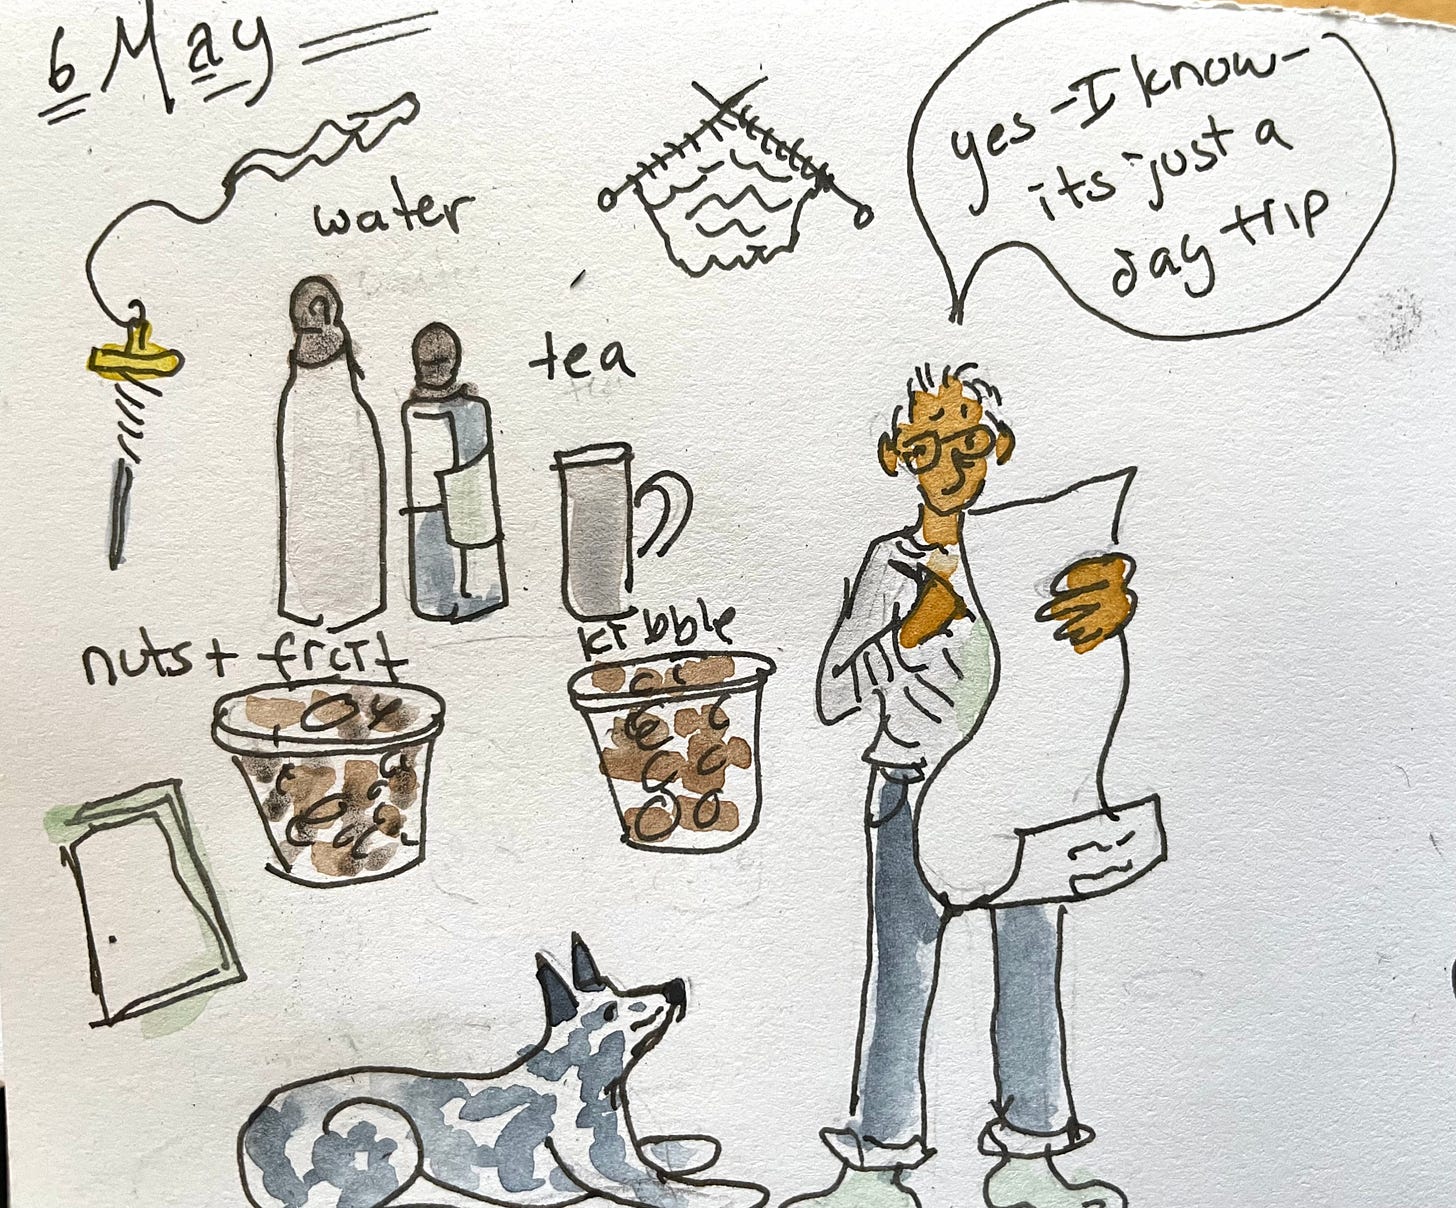 6 May
water
yes - I know -
its just a
day trip
tea
nuts + fruit
kibble